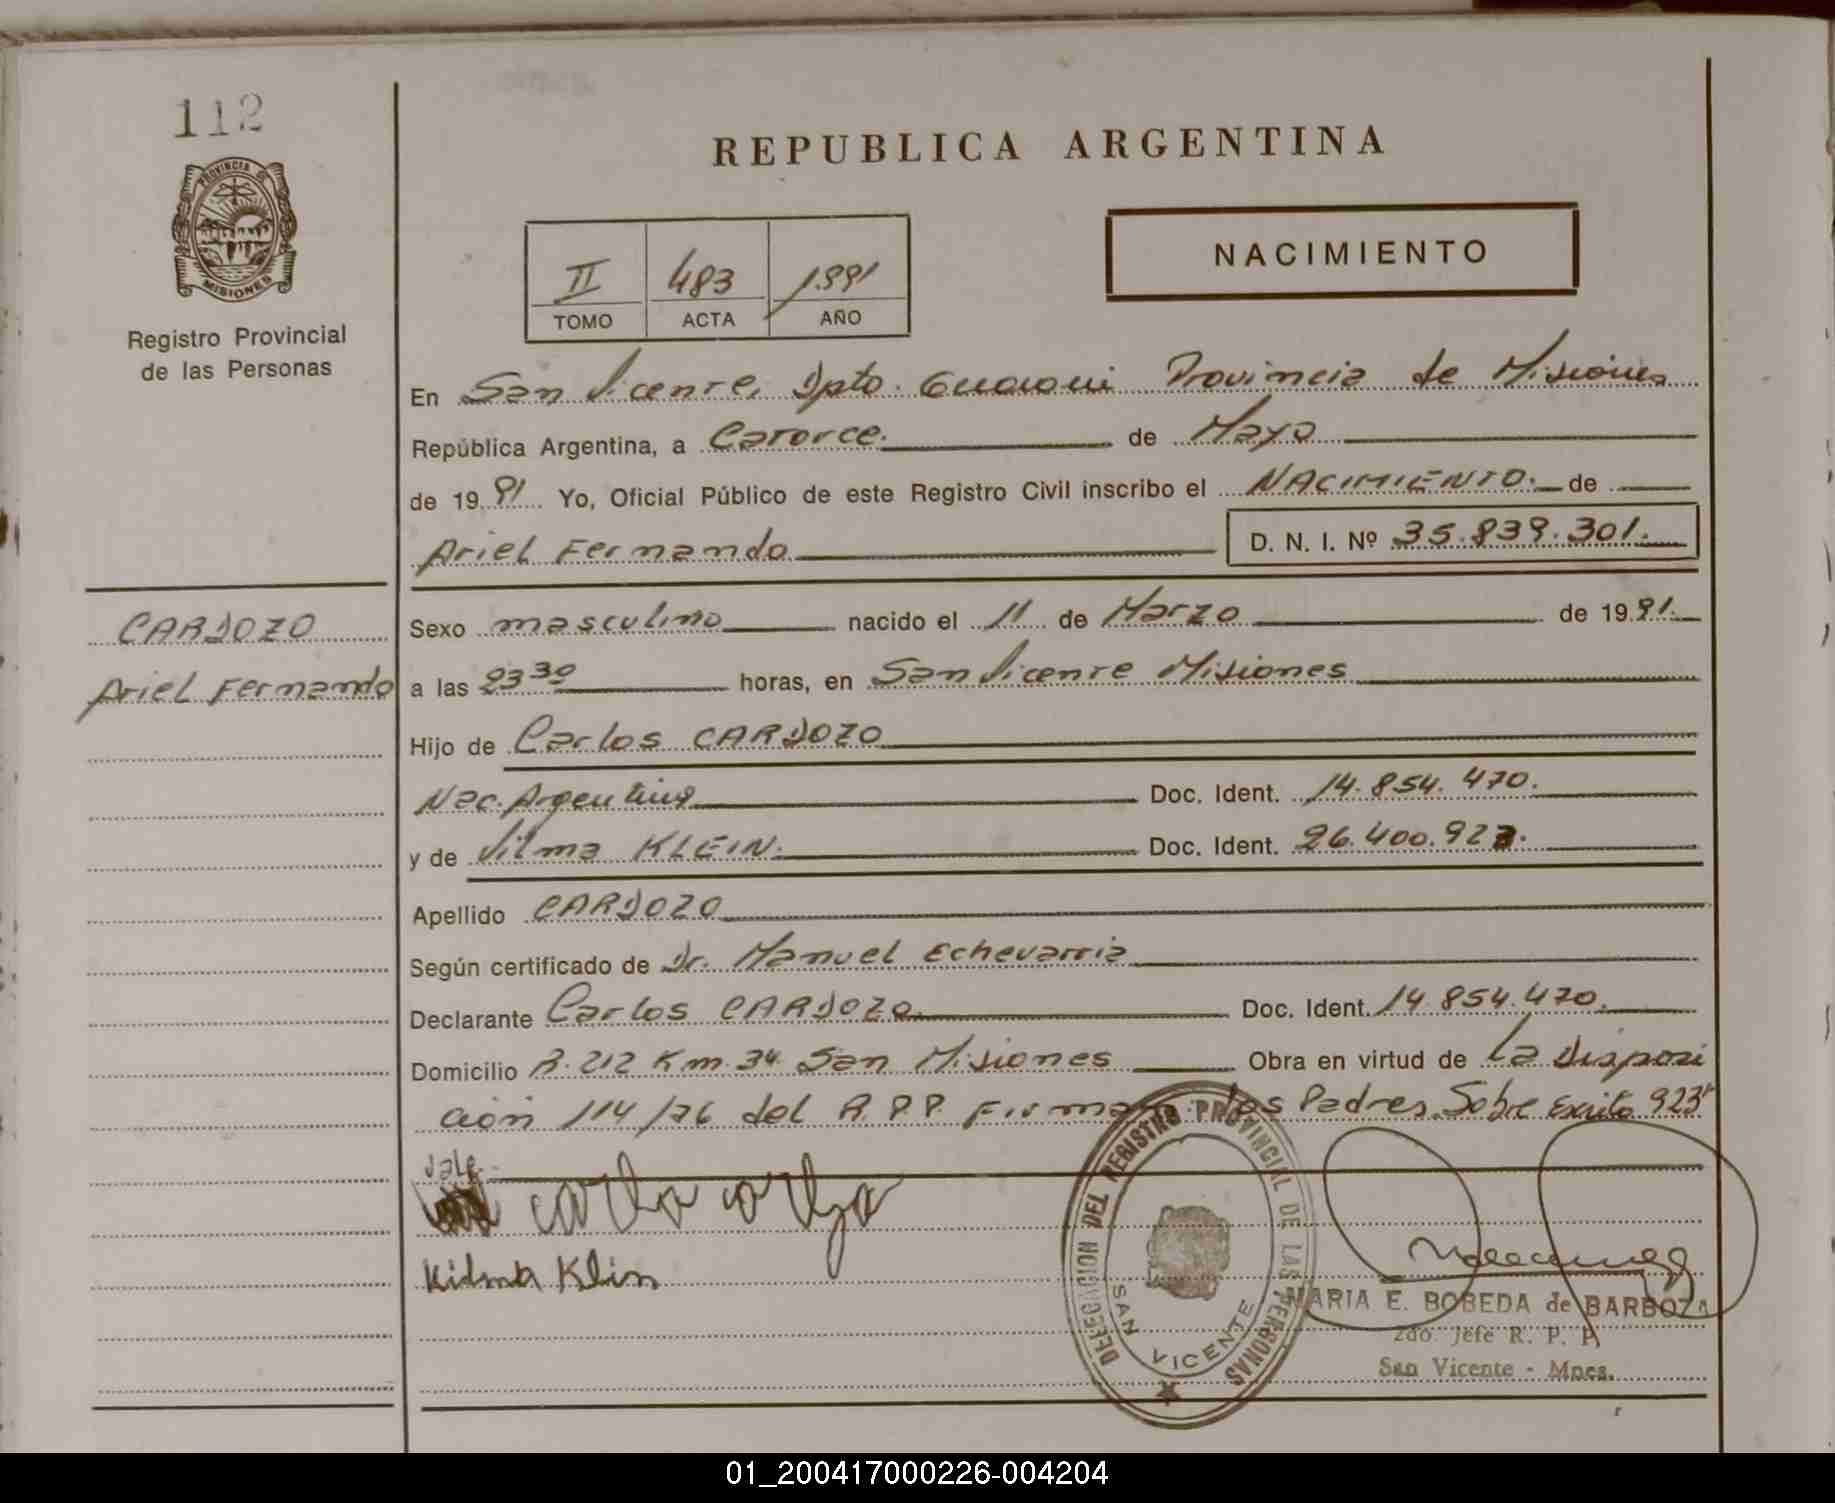 112
PROVINCIA DE
MISIONES
Registro Provincial
de las Personas
REPUBLICA ARGENTINA
II 483 1991
TOMO ACTA AÑO
NACIMIENTO
En San Vicente, Dpto. Guarani Provincia de Misiones
República Argentina, a Catorce. de Mayo
de 1991 Yo, Oficial Público de este Registro Civil inscribo el NACIMIENTO. de
Ariel Fernando D. N. I. Nº 35.839.301.
CARDOZO
Ariel Fernando
Sexo masculino nacido el 11 de Marzo de 1991.
a las 23 30 horas, en San Vicente Misiones
Hijo de Carlos CARDOZO
Nac. Argentina Doc. Ident. 14.854.470.
y de Vilma KLEIN. Doc. Ident. 26.400.923.
Apellido CARDOZO
Según certificado de Dr. Manuel Echevarria
Declarante Carlos CARDOZO Doc. Ident. 14.854.470.
Domicilio R. 212 Km. 34. San Misiones Obra en virtud de La Disposi
ción 114/76 del R.P.P. Firman los Padres. Sobre Escrito 923"
Vale.
Kidmk Klin
DELEGACION DEL REGISTRO PROVINCIAL DE LAS PERSONAS
SAN VICENTE
MARIA E. BOBEDA de BARBOZA
2do. Jefe R. P. P.
San Vicente - Mnes.
01_200417000226-004204